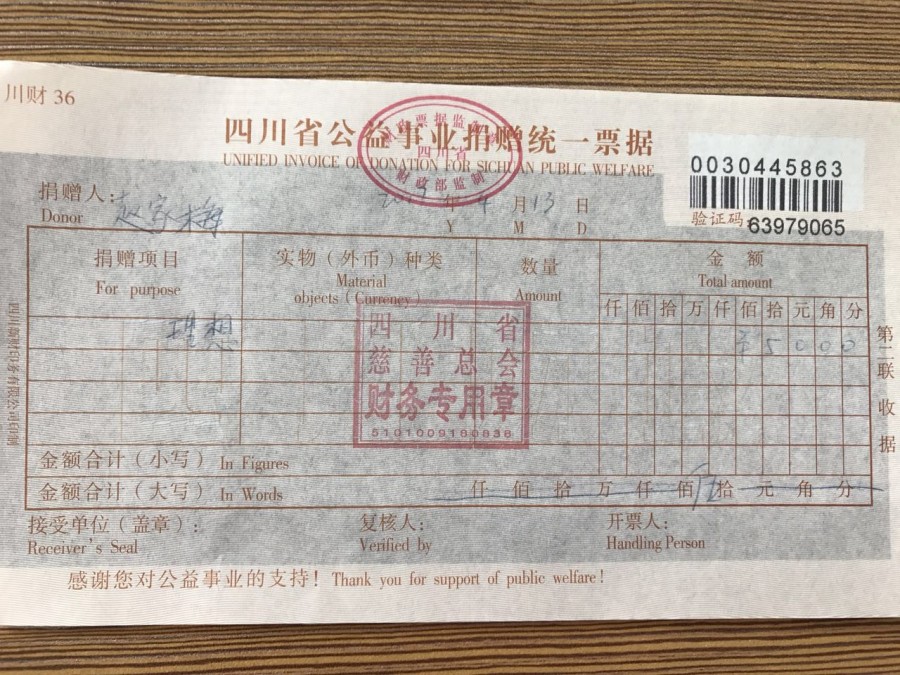 川财 36
四川省公益事业捐赠统一票据
UNIFIED INVOICE OF DONATION FOR SICHUAN PUBLIC WELFARE
四川省
财政部监制
0030445863
验证码: 63979065
捐赠人: 赵家梅
Donor
年 4 月 13 日
Y M D
捐赠项目 实物（外币）种类 数量 金额
For purpose Material objects (Currency) Amount Total amount
仟 佰 拾 万 仟 佰 拾 元 角 分
理想 ¥ 5 0 0 0
四川省
慈善总会
财务专用章
5101009180838
金额合计（小写） In Figures
金额合计（大写） In Words 仟 佰 拾 万 仟 佰 伍 拾 元 角 分
接受单位（盖章）: 复核人: 开票人:
Receiver's Seal Verified by Handling Person
感谢您对公益事业的支持！ Thank you for support of public welfare!
第二联 收据